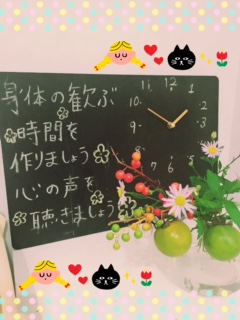 身体の歓ぶ
時間を
作りましょう
心の声を
聴きましょう
11 12 1
10 2
9 3
8
7 6 5